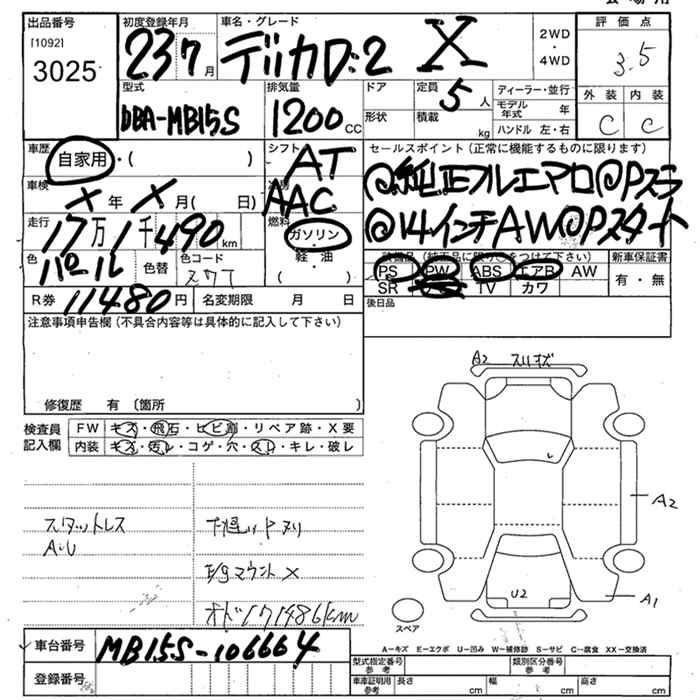 出品番号
[1092]
3025
初度登録年月
23 7月
車名・グレード
デリカD:2 X
2WD
・
4WD
評価点
3.5
外装 内装
C C
型式
DBA-MB15S
排気量
1200CC
ドア
形状
定員
5人
積載
kg
ディーラー・並行
モデル年式 年
ハンドル 左・右
車歴
自家用・( )
シフト
AT
AAC
セールスポイント(正常に機能するものに限ります)
@純正フルエアロ@Pスラ
@14インチAW@Pスタート
車検
X年 X月( 日)
走行
17万1千490km
燃料
ガソリン・
軽・油
( )
色
パール
色替
色コード
R券 11480円
名変期限 月 日
装備品
PS PW ABS エアB AW
SR TV カワ
新車保証書
有・無
後日品
注意事項申告欄(不具合内容等は具体的に記入して下さい)
修復歴 有 〔箇所 〕
検査員
記入欄
FW キズ・飛石・ヒビ割・リペア跡・X要
内装 キズ・汚レ・コゲ・穴・スレ・キレ・破レ
スタットレス
A・U
下廻りPヌリ
E/gマウントX
オド171486km
A2 スリキズ
A2
U2
A1
スペア
A−キズ E−エクボ U−凹み W−補修跡 S−サビ C−腐食 XX−交換済
車台番号
MB15S-106664
登録番号
型式指定番号
参考
類別区分番号
参考
車庫証明用
参考
長さ cm 幅 cm 高さ cm